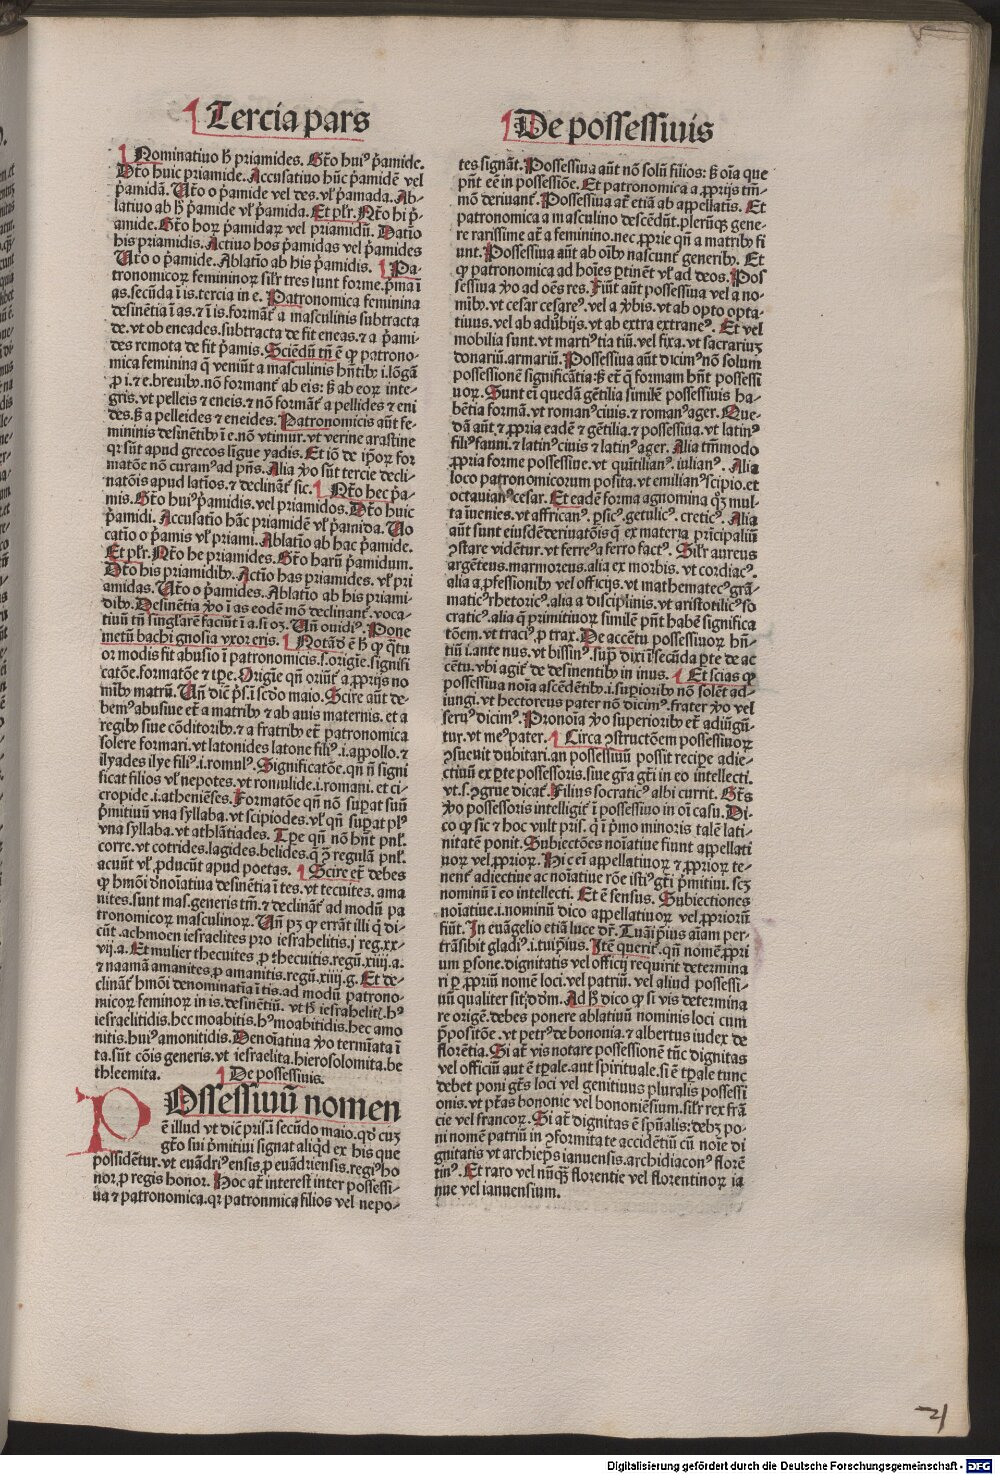 Tercia pars
De possessiuis
Nominatiuo h̓ priamides. Gt̄o hui⁹ p̄amide.
Dt̄o huic priamide. Accusatiuo hūc p̄amidē vel
p̄amidā. Ut̄o o p̄amide vel des. vl̓ p̄amada. Ab-
latiuo ab h̓ p̄amide vl̓ p̄amida. Et pl̓r. Nt̄o hi p̄-
amide. Gt̄o hoꝝ p̄amidaꝝ vel priamidū. Datīo
his priamidis. Actiuo hos p̄amidas vel p̄amides
Ut̄o o p̄amide. Ablatīo ab his p̄amidis. Pa-
tronomicoꝝ femininoꝝ sil̓r tres sunt forme. p̄ma ī
as. secūda ī is. tercia in e. Patronomica feminina
desinētia ī as. ⁊ ī is. formāt̄ a masculinis subtracta
de. vt ob eneades. subtracta de fit eneas. ⁊ a p̄ami-
des remota de fit p̄amis. Sciēdū tn̄ ē ꝙ patrono-
mica feminina q̄ veniūt a masculinis hn̄tibꝰ i. lōgā
ꝓ i. ⁊ e. breuibꝰ. nō formant̄ ab eis: sꝫ ab eoꝝ inte-
gris. vt pelleis ⁊ eneis. ⁊ nō formāt̄ a pellides ⁊ eni
des. sꝫ a pelleides ⁊ eneides. Patronomicis aūt fe-
mininis desinētibꝰ ī e. nō vtimur. vt verine arastine
qꝛ sūt apud grecos līgue yadis. Et iō de ip̄oꝝ for
matōe nō curam⁹ ad p̄ns. Alia ꝟo sūt tercie decli-
natōis apud latīos. ⁊ declināt̄ sic. Nt̄o hec p̄a-
mis. Gt̄o hui⁹ p̄amidis. vel priamidos. Dt̄o huic
p̄amidi. Accusatīo hāc priamidē vl̓ p̄amida. Uo
catīo o p̄amis vl̓ priami. Ablatīo ab hac p̄amide.
Et pl̓r. Nt̄o he priamides. Gt̄o harū p̄amidum.
Dt̄o his priamidibꝰ. Actīo has priamides. vl̓ pri
amidas. Ut̄o o p̄amides. Ablatīo ab his priami-
dibꝰ. Desinētia ꝟo ī as eodē mō declinant̄. voca-
tiuū tn̄ singl̓arē faciūt ī a. si oꝫ. Un̄ ouidi⁹. Pone
metū bachi gnosia vxor eris. Notādō ē h̓ ꝙ q̄tu
or modis fit abusio ī patronomicis. s. origīe. signifi
catōe. formatōe ⁊ tip̄e. Origīe qn̄ oriūt̄ a ꝓprijs no
mībꝰ matrū. Un̄ diē p̄s. i scd̄o maio. Scire aūt de-
bem⁹ abusiue et̄ a matribꝰ ⁊ ab auis maternis. et a
regibꝰ siue cōditoribꝰ. ⁊ a fratribꝰ et̄ patronomica
solere formari. vt latonides latone fili⁹. i. appollo. ⁊
ilyades ilye fili⁹. i. romul⁹. Significatōe. qn̄ n̄ signi
ficat filios vl̓ nepotes. vt romulide. i. romani. et ci-
cropide. i. atheniēses. Formatōe qn̄ nō supat̄ suū
p̄mitiuū vna syllaba. vt scipiodes. vl̓ qn̄ supat̄ pl⁹
vna syllaba. vt athlātiades. Tp̄e qn̄ nō hn̄t pnl̓.
corre. vt cotrides. lagides. belides. q̄ ꝫ regulā pnl̓.
acuūt vl̓ ꝓducūt apud poetas. Scire et̄ debes
ꝙ hmōi dn̄oiatiua desinētia ī tes. vt tecuites. ama
nites. sunt mas. generis tm̄. ⁊ declināt̄ ad modū pa
tronomicoꝝ masculinoꝝ. Un̄ pꝫ ꝙ errāt illi q̄ di-
cūt. achmoen iesraelites pro iesrahelitis. j reg. xx-
vij. a. Et mulier thecuites ꝓ thecuitis. regū. xiiij. a.
⁊ naamā amanites. ꝓ amanitis. regū. xiiij. g. Et de-
clināt̄ hmōi denominatiua ī tis. ad modū patrono-
micoꝝ feminoꝝ in is. desinētiū. vt h̓ iesrahelit̓. h⁹
iesraelitidis. hec moabitis. h⁹ moabitidis. hec amo
nitis. hui⁹ amonitidis. Denoīatiua ꝟo termīata ī
ta. sūt cōis generis. vt iesraelita. hierosolomita. be
thleemita.
De possessiuis.
POssessiuū nomen
ē illud vt diē prisⁱ secūdo maio. qd̓ cuꝫ
gt̄o sui p̄mitiui signat aliqd̓ ex his que
possidētur. vt euādri⁹ ensis. ꝓ euādriensis. regi⁹ ho
nor. ꝓ regis honor. Hoc at̄ interest inter possessi-
ua ⁊ patronomica. qꝛ patronmica filios vel nepo-
tes signāt. Possessiua aūt nō solū filios: sꝫ oīa que
pn̄t eē in possessiōe. Et patronomica a ꝓprijs tm̄-
mō deriuant̄. Possessiua at̄ etiā ab appellatis. Et
patronomica a masculino descēdūt. plerūqꝫ gene-
re rarissime at̄ a feminino. nec ꝓprie qn̄ a matribꝰ fi
unt. Possessiua aūt ab oībꝰ nascunt̄ generibꝰ. Et
ꝙ patronomica ad hoīes ꝑtinēt vl̓ ad deos. Pos
sessiua ꝟo ad oēs res. Fiūt aūt possessiua vel a no-
mībꝰ. vt cesar cesare⁹. vel a ꝟbis. vt ab opto opta-
tiuus. vel ab aduꝰbijs. vt ab extra extrane⁹. Et vel
mobilia sunt. vt marti⁹ tia tiū. vel fixa. vt sacrariuꝫ
donariū. armariū. Possessiua aūt dicim⁹ nō solum
possessionē significātia: sꝫ et̄ q̄ formam hn̄t possessi
uoꝝ. Sunt ei̓ quedā gētilia similē possessiuis ha-
bētia formā. vt roman⁹ ciuis. ⁊ roman⁹ ager. Que-
dā aūt ⁊ ꝓpria eadē ⁊ gētilia. ⁊ possessiua. vt latin⁹
fili⁹ fauni. ⁊ latin⁹ ciuis ⁊ latin⁹ ager. Alia tn̄modo
ꝓpria forme possessiue. vt quītilian⁹. iulian⁹. Alia
loco patronomicorum posita. vt emilian⁹ scipio. et
octauian⁹ cesar. Et eadē forma agnomina qꝫ mul
ta īuenies. vt affrican⁹. ꝑsic⁹. getulic⁹. cretic⁹. Alia
aūt sunt eiusdē deriuatōis q̄ ex materia prīcipaliū
ꝯstare vidētur. vt ferre⁹ a ferro fact⁹. Sil̓r aureus
argēteus. marmoreus. alia ex morbis. vt cordiac⁹.
alia a ꝓfessionibꝰ vel officijs. vt mathematec⁹ grā-
matic⁹ rhetoric⁹. alia a disciplinis. vt aristotilic⁹ so
cratic⁹. alia q̄ primitiuoꝝ similē pn̄t habē significa
tōem. vt traci⁹. ꝓ trax. De accētu possessiuoꝝ hn̄-
tiū i. ante nus. vt bissin⁹. sup̄ dixi ī secūda ꝑte de ac
cētu. vbi agit̄ de desinentibꝰ in inus. Et scias ꝙ
possessiua noīa ascēdētibꝰ. i. supioribꝰ nō solēt ad-
iungi. vt hectoreus pater nō dicim⁹. frater ꝟo vel
seru⁹ dicim⁹. Pronoīa ꝟo superioribꝰ et̄ adiūgū-
tur. vt me⁹ pater. Circa ꝯstructōem possessiuoꝝ
ꝯsueuit dubitari. an possessiuū possit recipe adie-
ctiuū ex ꝑte possessoris. siue gr̄a gt̄i in eo intellecti.
vt. s. ꝯgrue dicat̄. Filius socratic⁹ albi currit. Gt̄s
ꝟo possessoris intelligit̄ ī possessiuo in oī casu. Di-
co ꝙ sic ⁊ hoc vult pris. q̄ ī p̄mo minoris talē lati-
nitatē ponit. Subiectōes noīatiue fiunt appellati
uoꝝ vel ꝓprioꝝ. Hic ei̓ appellatiuoꝝ ⁊ ꝓprioꝝ te-
nent̄ adiectiue ac noīatiue rōe isti⁹ gt̄i p̄mitiui. scꝫ
nominū ī eo intellecti. Et ē sensus. Subiectiones
noīatiue. i. nominū dico appellatiuoꝝ vel ꝓprioꝝ
fiūt. In euāgelio etiā luce dꝛ. Tuā ip̄ius aīam per-
trāsibit gladi⁹. i. tui ip̄ius. Itē querit̄. qn̄ nomē ꝓpri
um ꝑsone. dignitatis vel officij requirit determina
ri ꝑ ꝓpriū nomē loci. vel patriū. vel aliud possessi-
uū qualiter sit̓ dd̓m. Ad h̓ dico ꝙ si vis determina
re origē. debes ponere ablatiuū nominis loci cum
p̄positōe. vt petr⁹ de bononia. ⁊ albertus iudex de
florētia. Si at̄ vis notare possessionē tūc dignitas
vel officiū aut ē tꝑale. aut spirituale. si ē tꝑale tunc
debet poni gt̄s loci vel genitiuus pluralis possessi
onis. vt pt̄as bononie vel bononiēsium. sil̓r rex frā
cie vel francoꝝ. Si at̄ dignitas ē spūalis: debꝫ po-
ni nomē patriū in ꝯformitate accidētiū cū noīe di
gnitatis vt archiep̄s ianuensis. archidiacon⁹ florē
tin⁹. Et raro vel nūqꝫ florentie vel florentinoꝝ ia
nue vel ianuensium.
Digitalisierung gefördert durch die Deutsche Forschungsgemeinschaft - DFG